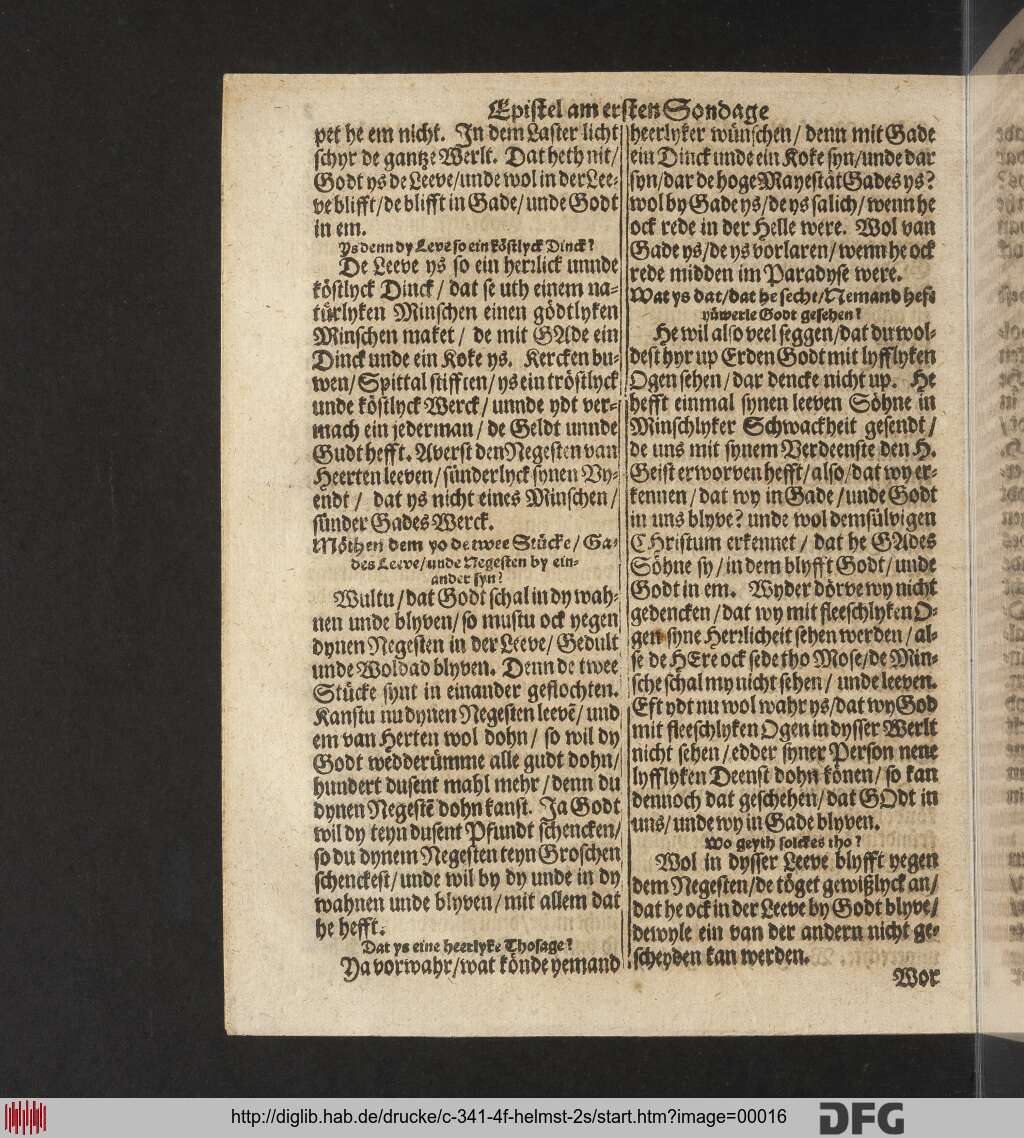 Epistel am ersten Sondage
pet he em nicht. In dem Laster licht
schyr de gantze Werlt. Dat heth nit/
Godt ys de Leeve/unde wol in der Lee-
ve blifft/de blifft in Gade/unde Godt
in em.
Ys denn dy Leve so ein köstlyck Dinck?
De Leeve ys so ein herrlick unnde
köstlyck Dinck/dat se uth einem na-
türlyken Minschen einen gödtlyken
Minschen maket/ de mit GAde ein
Dinck unde ein Koke ys. Kercken bu-
wen/Spittal stifften/ys ein tröstlyck
unde köstlyck Werck/unnde ydt ver-
mach ein jederman/de Geldt unnde
Gudt hefft. Averst den Negesten van
Heerten leeven/sünderlyck synen Vy-
endt/ dat ys nicht eines Minschen/
sünder Gades Werck.
Möthen dem yo de twee Stücke/Ga-
des Leeve/unde Negesten by ein-
ander syn?
Wultu/dat Godt schal in dy wah-
nen unde blyven/so mustu ock yegen
dynen Negesten in der Leeve/Gedult
unde Woldad blyven. Denn de twee
Stücke synt in einander geflochten.
Kanstu nu dynen Negesten leevē/und
em van Herten wol dohn/so wil dy
Godt wedderümme alle gudt dohn/
hundert dusent mahl mehr/denn du
dynen Negestē dohn kanst. Ja Godt
wil dy teyn dusent Pfundt schencken/
so du dynem Negesten teyn Groschen
schenckest/unde wil by dy unde in dy
wahnen unde blyven/mit allem dat
he hefft.
Dat ys eine heerlyke Thosage?
Ya vorwahr/wat könde yemand
heerlyker wünschen/denn mit Gade
ein Dinck unde ein Koke syn/unde dar
syn/dar de hoge Mayestät Gades ys?
wol by Gade ys/de ys salich/wenn he
ock rede in der Helle were. Wol van
Gade ys/de ys vorlaren/wenn he ock
rede midden im Paradyse were.
Wat ys dat/dat he secht/Nemand heft
yüwerle Godt gesehen?
He wil also veel seggen/dat du wol-
dest hyr up Erden Godt mit lyfflyken
Ogen sehen/dar dencke nicht up. He
hefft einmal synen leeven Söhne in
Minschlyker Schwackheit gesendt/
de uns mit synem Verdeenste den H.
Geist erworven hefft/also/dat wy er-
kennen/dat wy in Gade/unde Godt
in uns blyve? unde wol demsülvigen
CHristum erkennet/dat he GAdes
Söhne sy/in dem blyfft Godt/unde
Godt in em. Wyder dörve wy nicht
gedencken/dat wy mit fleeschlyken O-
gen syne Herrlicheit sehen werden/al-
se de HEre ock sede tho Mose/de Min-
sche schal my nicht sehen/ unde leeven.
Eft ydt nu wol wahr ys/dat wy God
mit fleeschlyken Ogen in dysser Werlt
nicht sehen/edder syner Person nene
lyfflyken Deenst dohn könen/so kan
dennoch dat geschehen/dat GOdt in
uns/unde wy in Gade blyven.
Wo geyth solckes tho?
Wol in dysser Leeve blyfft yegen
dem Negesten/de töget gewißlyck an/
dat he ock in der Leeve by Godt blyve/
dewyle ein van der andern nicht ge-
scheyden kan werden.
Wor
http://diglib.hab.de/drucke/c-341-4f-helmst-2s/start.htm?image=00016
DFG